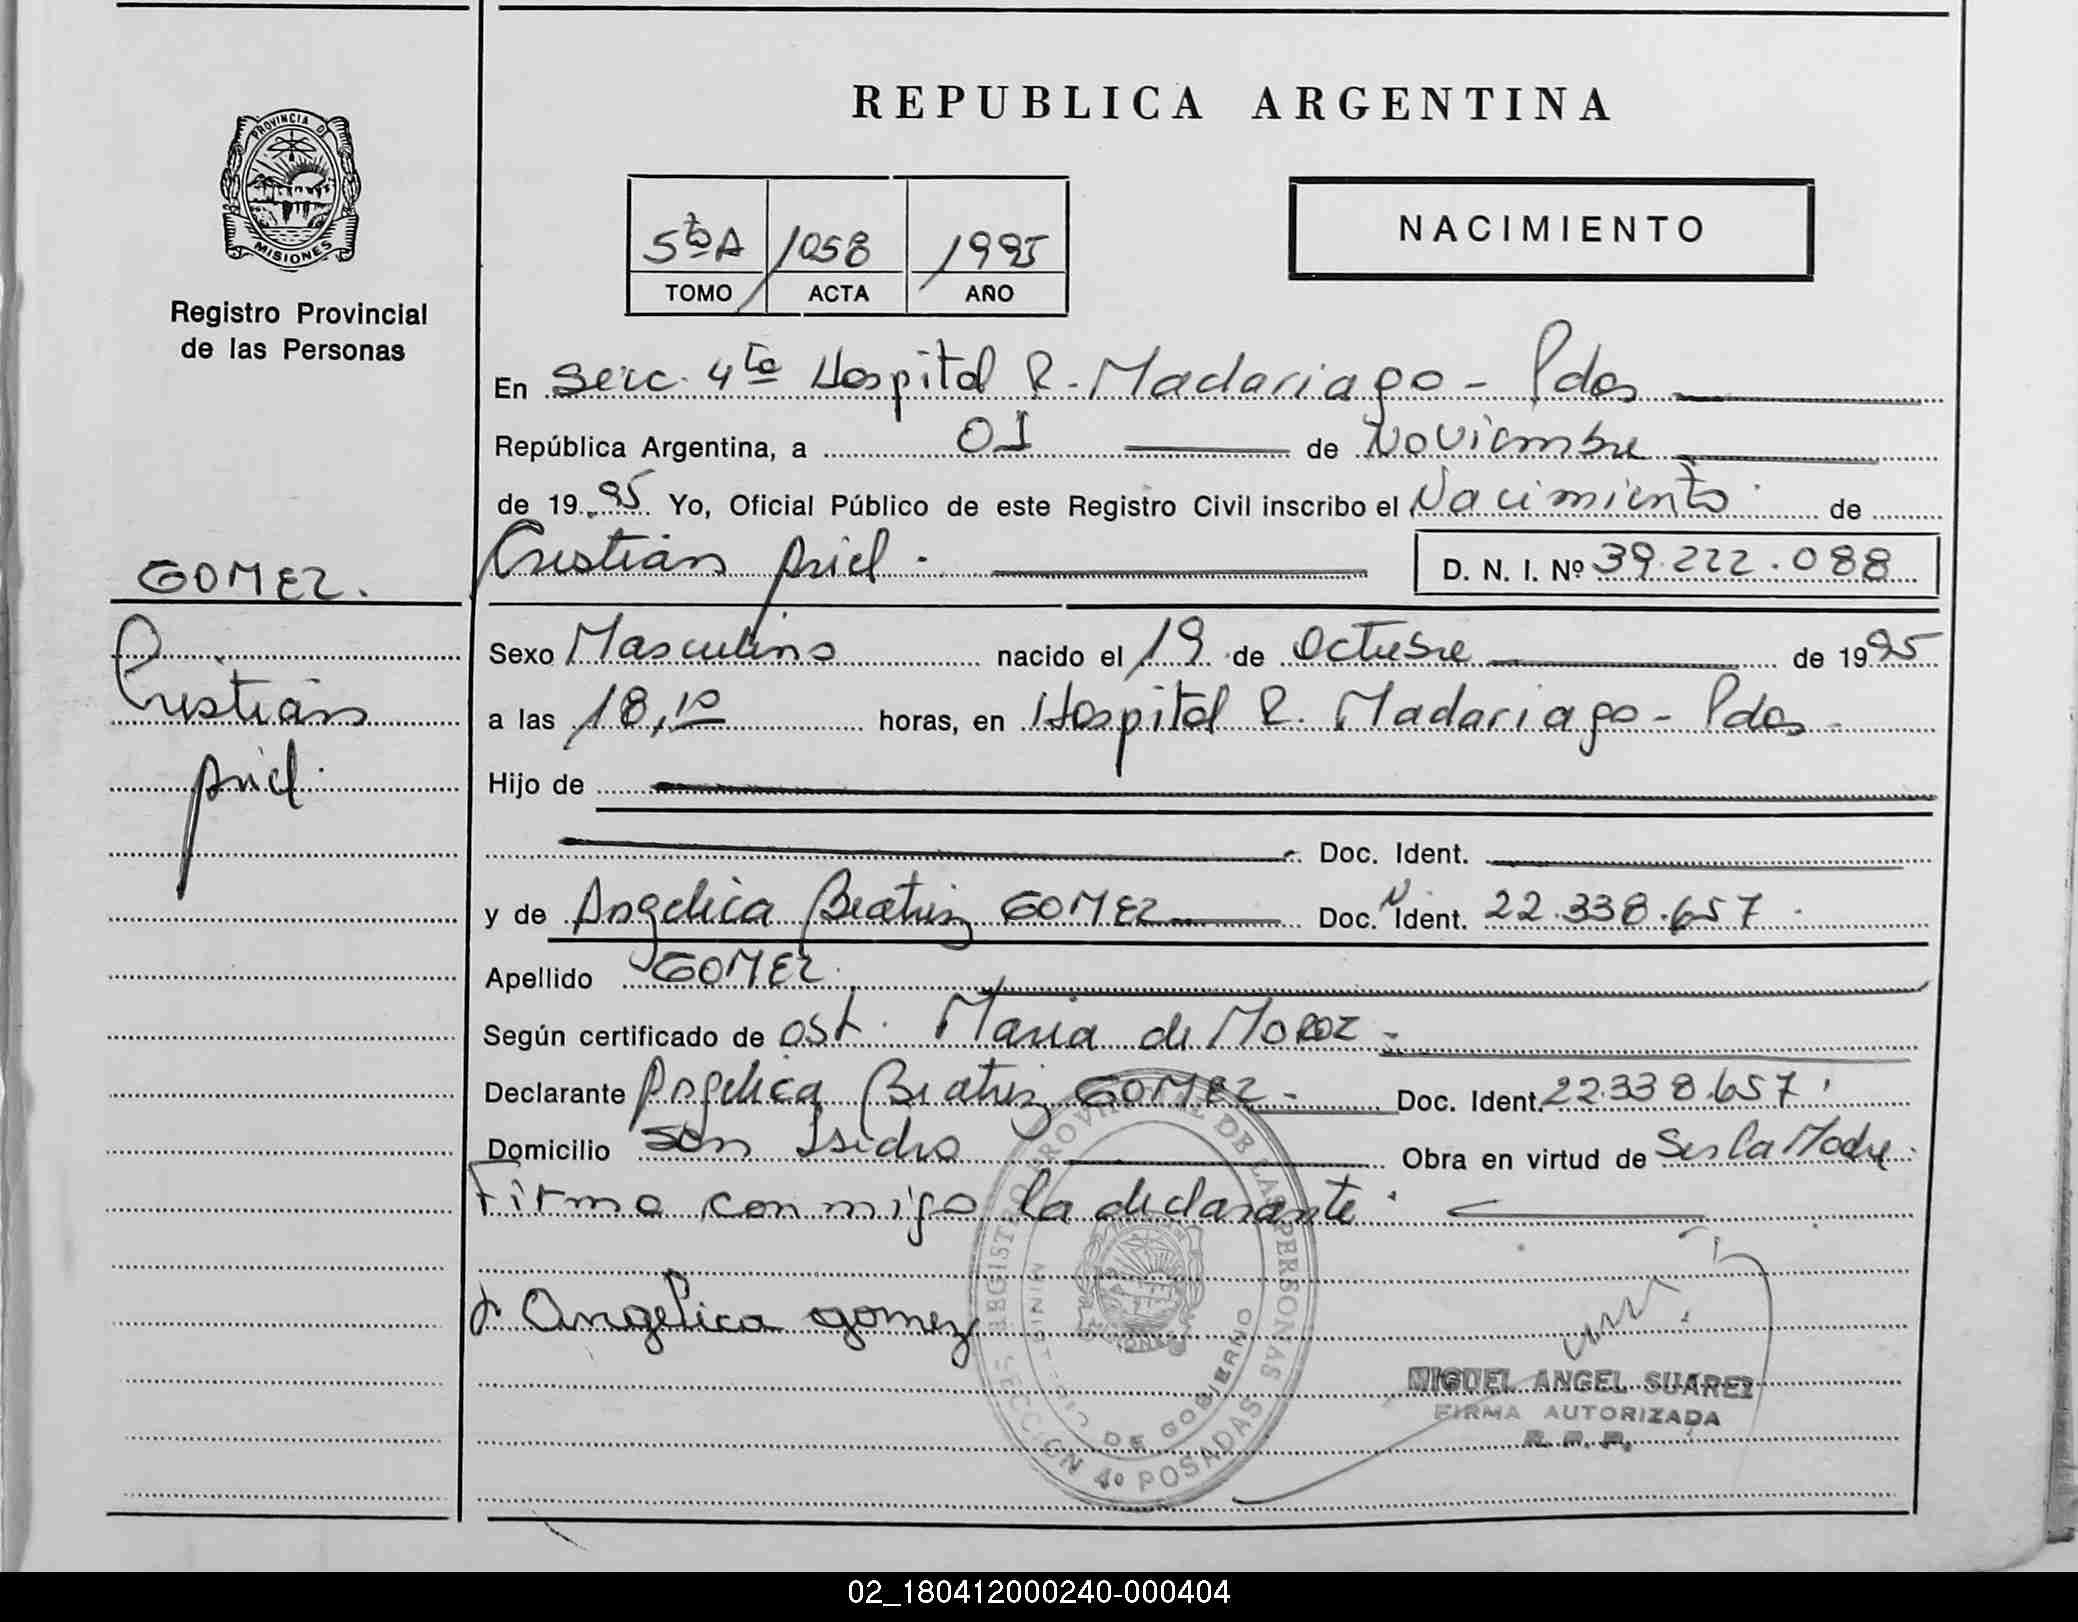 REPUBLICA ARGENTINA
PROVINCIA D
MISIONES
Registro Provincial
de las Personas
5toA 1058 1995
TOMO ACTA AÑO
NACIMIENTO
En Secc. 4ta Hospital R. Madariaga - Pdas
República Argentina, a 01 de Noviembre
de 1995 Yo, Oficial Público de este Registro Civil inscribo el Nacimiento de
Cristian Ariel. D. N. I. Nº 39.222.088
GOMEZ.
Cristian
Ariel.
Sexo Masculino nacido el 19 de Octubre de 1995
a las 18,10 horas, en Hospital R. Madariaga - Pdas -
Hijo de
Doc. Ident.
y de Angelica Beatriz GOMEZ Doc. Ident. 22.338.657.
Apellido GOMEZ.
Según certificado de Ost. Maria de Moroz -
Declarante Angelica Beatriz GOMEZ - Doc. Ident. 22.338.657.
Domicilio San Isidro Obra en virtud de Ser la Madre.
Firma conmigo la declarante.
Angelica gomez
REGISTRO PROVINCIAL DE LAS PERSONAS
SECCION 4º POSADAS
DE GOBIERNO
MIGUEL ANGEL SUAREZ
FIRMA AUTORIZADA
R. P. P.
02_180412000240-000404